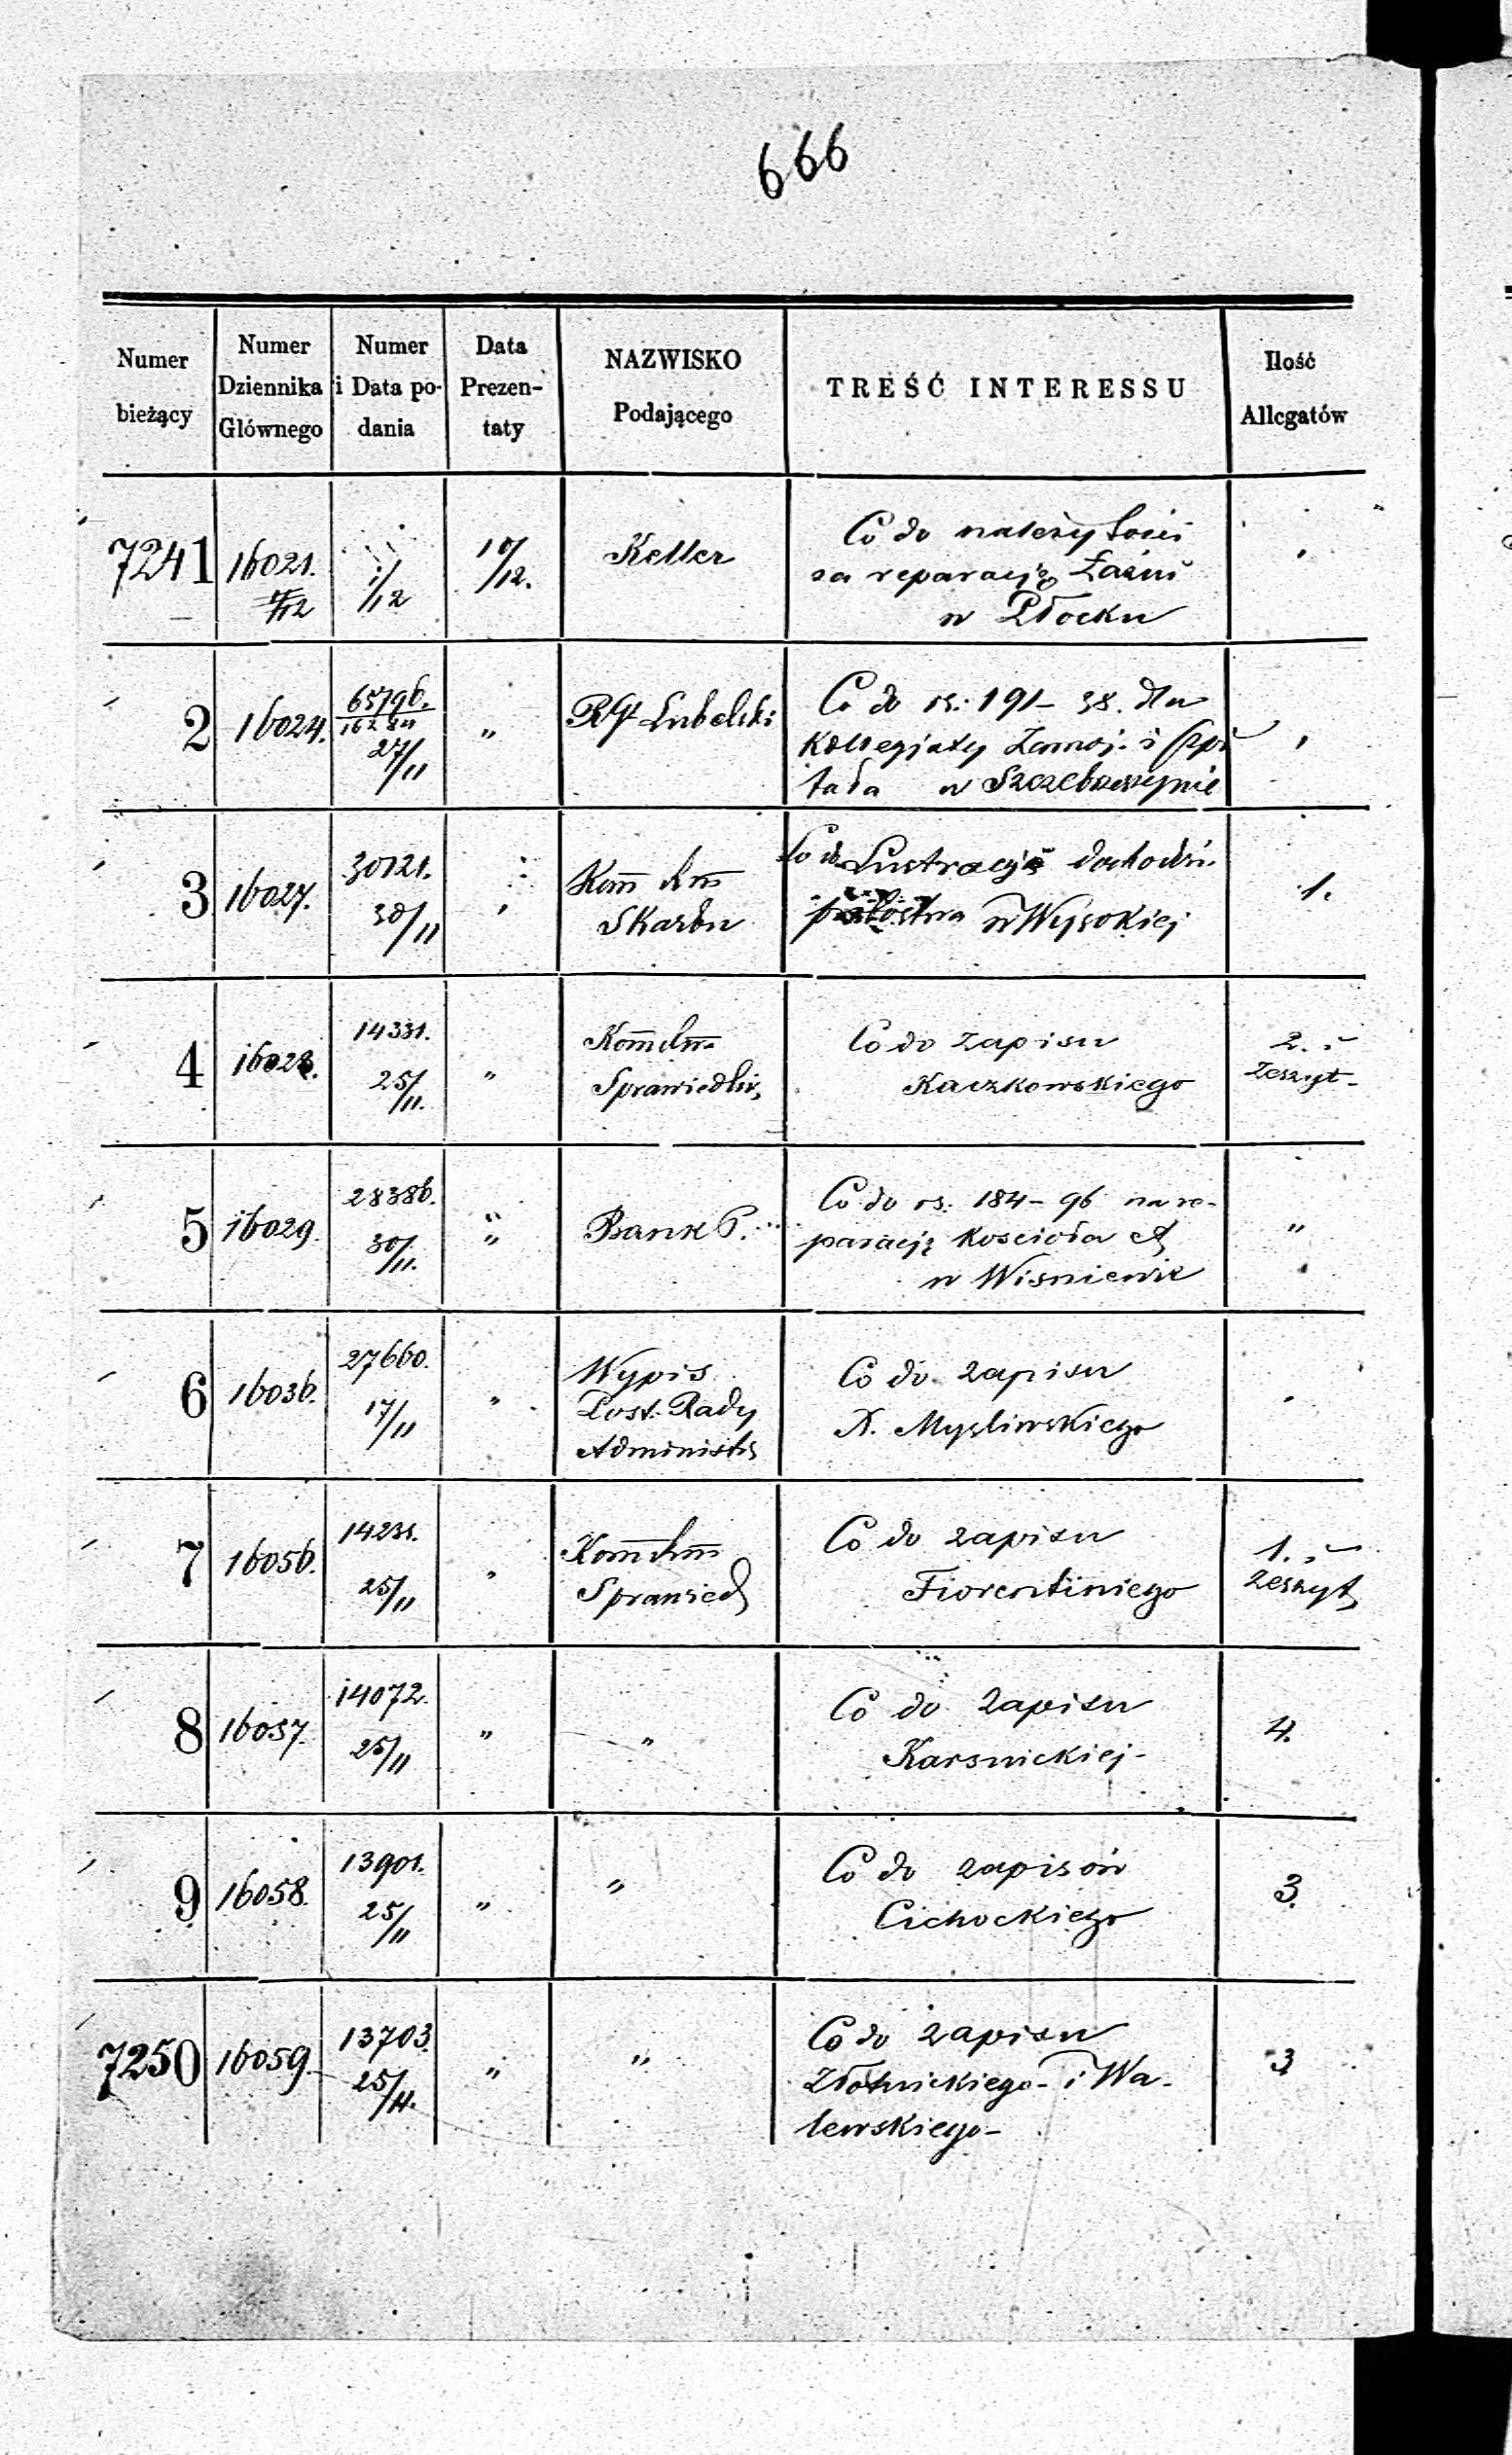 666
Numer bieżący | Numer Dziennika Głównego | Numer i Data podania | Data Prezentaty | NAZWISKO Podającego | TREŚĆ INTERESSU | Ilość Allegatów
7241 16021. 1/12 10/12. Keller Co do należytości
za reparacją Łaźni
w Płocku
2 16024. 65796. 27/11 " RG Lubelski Co do rs: 191-38. dla
Kollegjaty Zamoj. i Szpi
tala w Szczebrzeszynie
3 16027. 30721. 30/11 Komm
Skarbu Co do Lustracyi dochodu.
w Wysokiej 1.
4 16028. 14331. 25/11. " Komm
Sprawiedliw, Co do zapisu
Kaczkowskiego 2. i
Zeszyt-
5 16029. 28386. 30/11. " Bank P. Co do rs: 184-96 na re-
paracją Kościoła
w Wisniewie "
6 16036. 27660. 17/11 " Wypis
Post. Rady
Administr Co do zapisu
X. Mysliwskiego
7 16056. 14231. 25/11 " Komm
Sprawied Co do zapisu
Fiorentiniego 1. i
Zeszyt
8 16057. 14072. 25/11 " " Co do Zapisu
Karsnickiej- 4.
9 16058. 13901. 25/11 " " Co do zapisów
Cichockiego 3
7250 16059. 13703. 25/11. " " Co do zapisu
Złotnickiego- i Wa-
lewskiego- 3